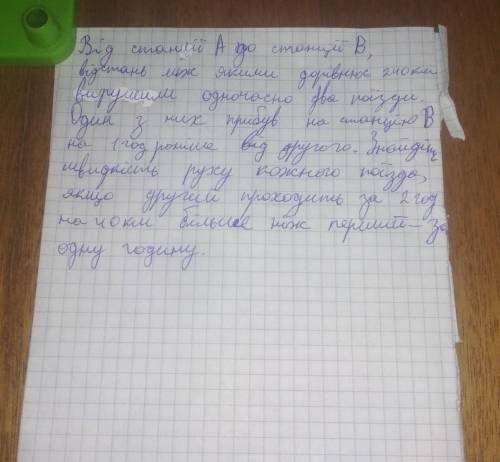 Від станції А до станції В,
відстань між якими дорівнює 240км
вирушили одночасно два поїзди.
Один з них прибув на станцію В
на 1 год раніше від другого. Знайдіть
швидкість руху кожного поїзда,
якщо другий проходить за 2 год
на 40км більше ніж перший - за
одну годину.